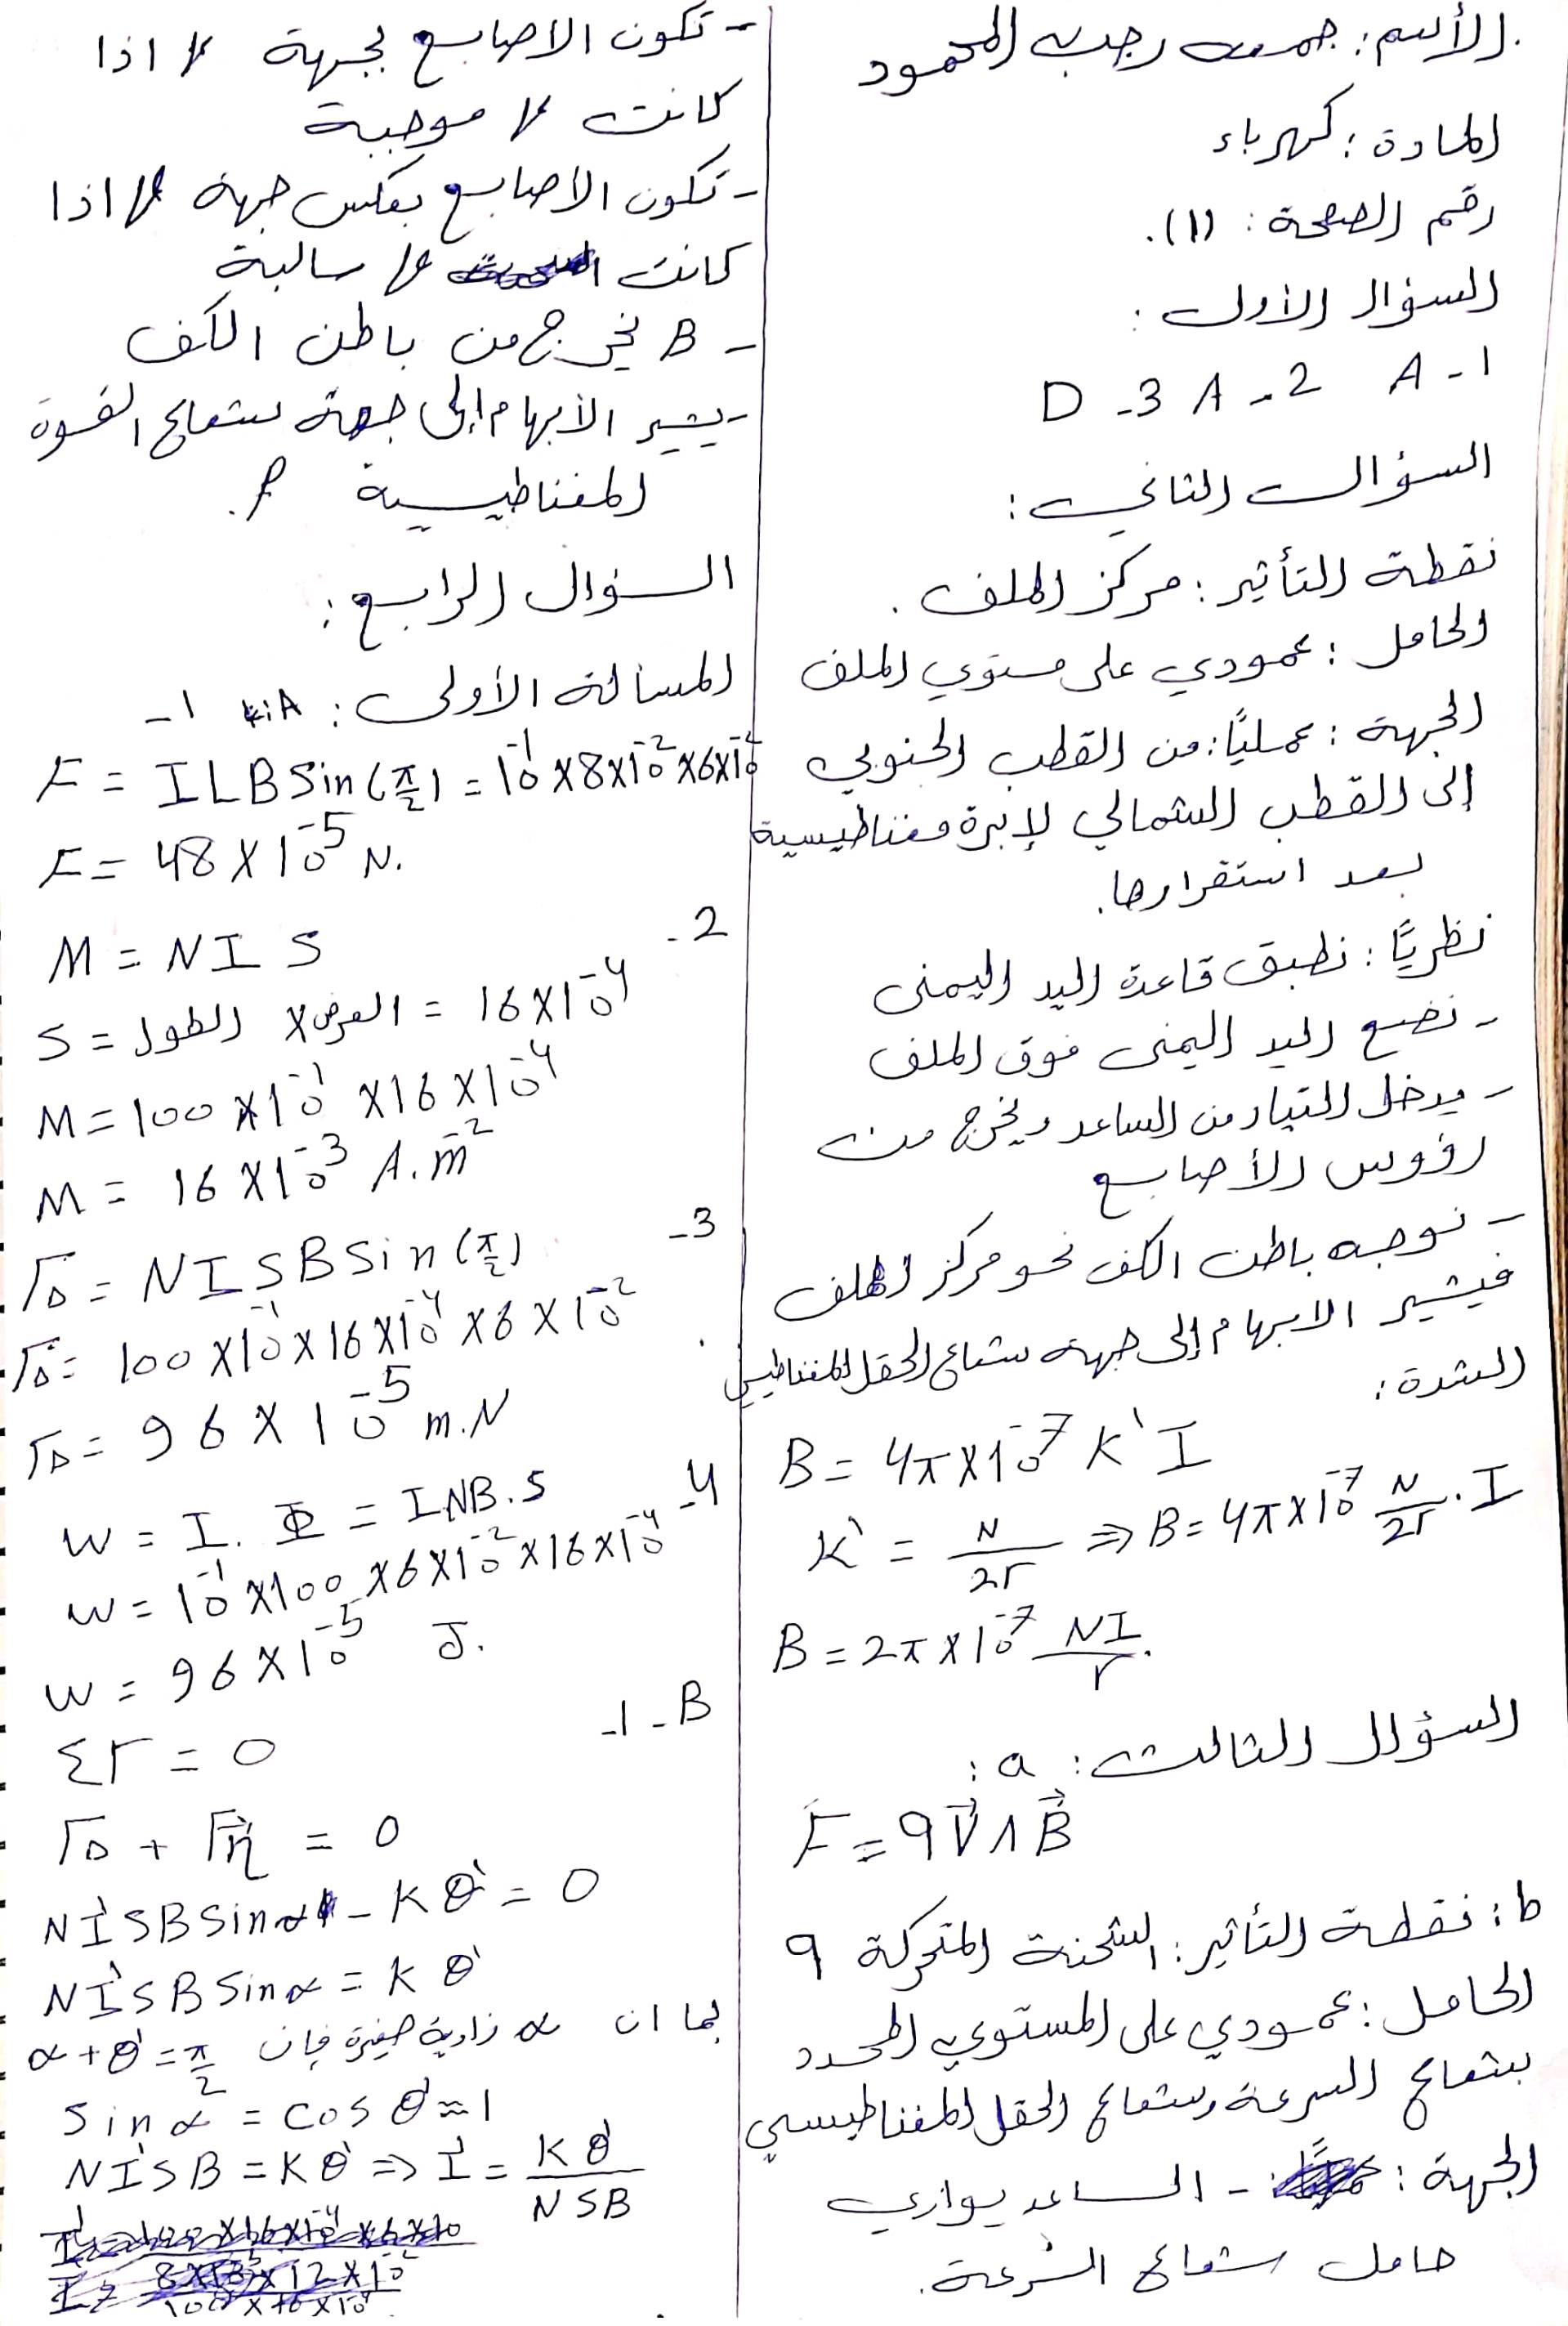 الأسم: جمعه رجب المحمود
المادة: كهرباء
رقم الصفحة: (1).
السؤال الأول:
1- A 2- A 3- D
السؤال الثاني:
نقطة التأثير: مركز الملف.
الحامل: عمودي على مستوي الملف
الجهة: عمليًا: من القطب الجنوبي
إلى القطب الشمالي لإبرة مغناطيسية
بعد استقرارها.
نظريًا: نطبق قاعدة اليد اليمنى
- نضع اليد اليمنى فوق الملف
- يدخل التيار من الساعد ويخرج من
رؤوس الأصابع
- نوجه باطن الكف نحو مركز الملف
فيشير الابهام إلى جهة شعاع الحقل المغناطيسي
الشدة:
B = 4π×10⁻⁷ K' I
K' = N/2r ⇒ B = 4π×10⁻⁷ N/2r . I
B = 2π×10⁻⁷ NI/r.
السؤال الثالث: a:
F = qV⃗ ∧ B⃗
b: نقطة التأثير: الشحنة المتحركة q
الحامل: عمودي على المستوي المحدد
بشعاع السرعة وشعاع الحقل المغناطيسي
الجهة: - الساعد يوازي
حامل شعاع السرعة.
- تكون الاصابع بجهة v اذا
كانت q موجبة
- تكون الأصابع بعكس جهة v اذا
كانت q سالبة
- B يخرج من باطن الكف
- يشير الأبهام إلى جهة شعاع القوة
المغناطيسية F.
السؤال الرابع:
المسألة الأولى: A: 1-
F = ILB Sin(π/2) = 10⁻¹×8×10⁻²×6×10⁻²
F = 48×10⁻⁵ N.
2- M = N I S
S = الطول × العرض = 16×10⁻⁴
M = 100×10⁻¹×16×10⁻⁴
M = 16×10⁻³ A.m⁻²
3- Γ∆ = NISB Sin(π/2)
Γ∆ = 100×10⁻¹×16×10⁻⁴×6×10⁻²
Γ∆ = 96×10⁻⁵ m.N
4- W = I.Φ = INB.S
W = 10⁻¹×100×6×10⁻²×16×10⁻⁴
W = 96×10⁻⁵ J.
B-1-
ΣΓ = 0
Γ∆ + Γη' = 0
NI'SB Sinα - Kθ' = 0
NI'SB Sinα = Kθ'
بما ان α زاوية صغيرة فإن α+θ' = π/2
Sinα = cosθ' ≈ 1
NI'SB = Kθ' ⇒ I' = Kθ'/NSB